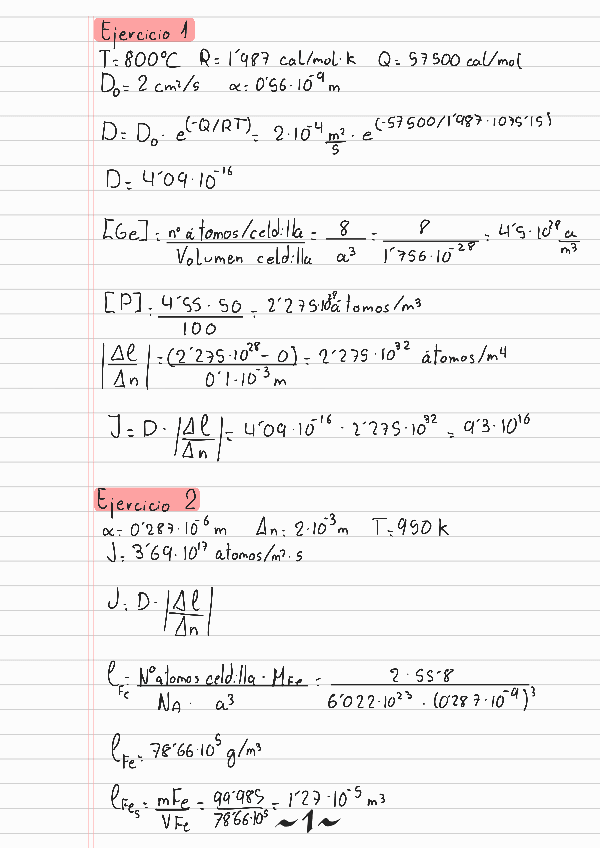 Ejercicio 1
T=800ºC R=1'987 cal/mol·k Q=57500 cal/mol
D₀=2 cm²/s α=0'56·10⁻⁹ m
D=D₀·e^(-Q/RT)= 2·10⁻⁴ m²/s · e^(-57500/1'987·1075'15)
D=4'09·10⁻¹⁶
[Ge]= nº átomos/celdilla / Volumen celdilla = 8/a³ = 8/1'756·10⁻²⁸ = 4'5·10²⁸ a/m³
[P]= 4'55·50/100 = 2'275·10²⁸ átomos/m³
|Δℓ/Δn|=(2'275·10²⁸-0)/0'1·10⁻³m = 2'275·10³² átomos/m⁴
J=D·|Δℓ/Δn|= 4'09·10⁻¹⁶ · 2'275·10³² = 9'3·10¹⁶
Ejercicio 2
α=0'287·10⁻⁶ m Δn=2·10⁻³m T=950 k
J=3'69·10¹⁷ atomos/m²·s
J=D·|Δℓ/Δn|
ℓFe= Nºatomos celdilla·MFe / NA·a³ = 2·55'8 / 6'022·10²³·(0'287·10⁻⁹)³
ℓFe=78'66·10⁵ g/m³
ℓFes= mFe/VFe = 99'985/78'66·10⁵ = 1'27·10⁻⁵ m³
~1~